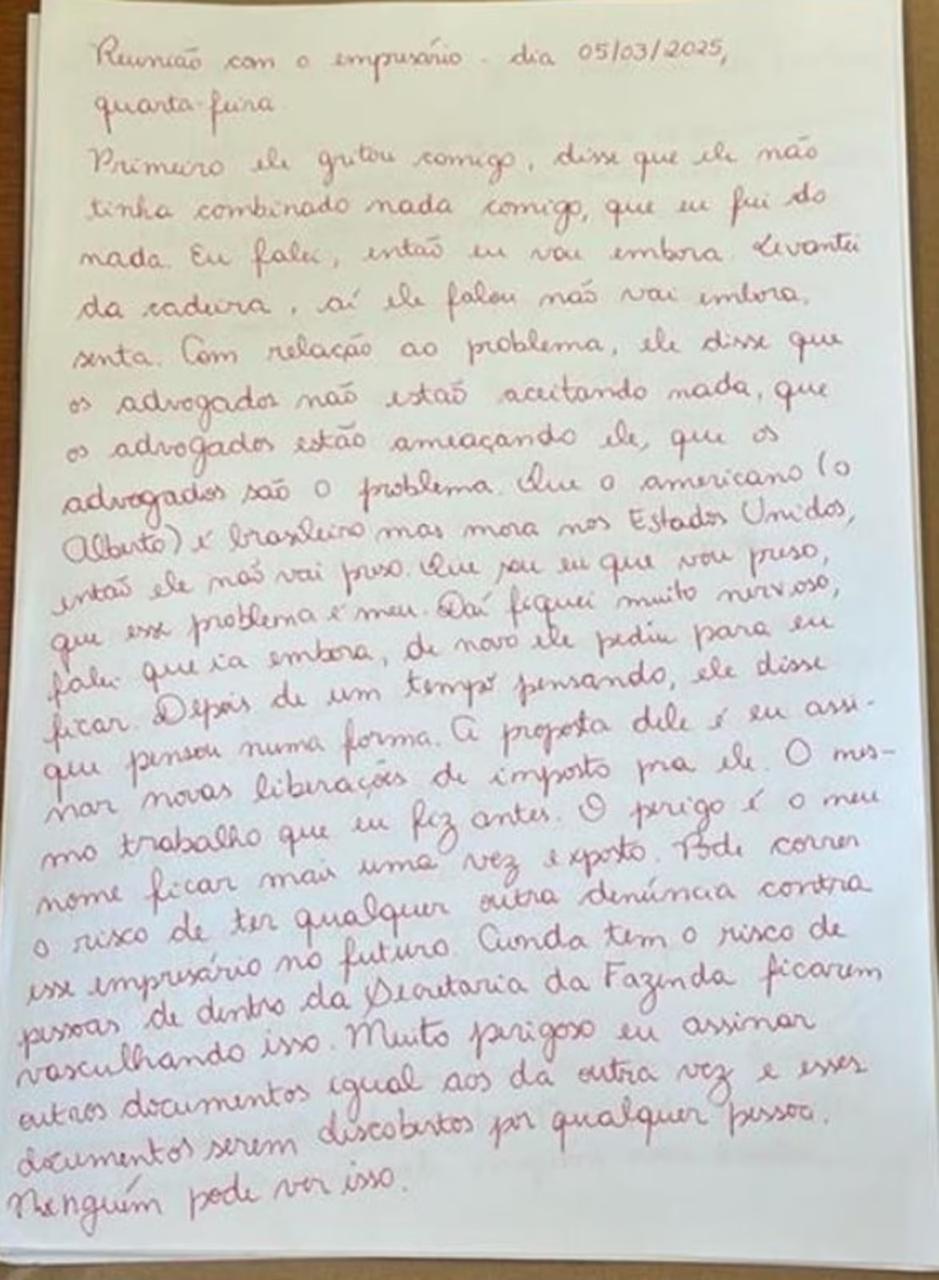 Reunião com o empresário - dia 05/03/2025,
quarta-feira.
Primeiro ele gritou comigo, disse que ele não
tinha combinado nada comigo, que eu fui do
nada. Eu falei, então eu vou embora. Levantei
da cadeira, aí ele falou não vai embora,
senta. Com relação ao problema, ele disse que
os advogados não estão aceitando nada, que
os advogados estão ameaçando ele, que os
advogados são o problema. Que o americano (o
Alberto) é brasileiro mas mora nos Estados Unidos,
então ele não vai preso. Que sou eu que vou preso,
que esse problema é meu. Daí fiquei muito nervoso,
falei que ia embora, de novo ele pediu para eu
ficar. Depois de um tempo pensando, ele disse
que pensou numa forma. A proposta dele é eu assi-
nar novas liberações de imposto pra ele. O mes-
mo trabalho que eu fiz antes. O perigo é o meu
nome ficar mais uma vez exposto. Pode correr
o risco de ter qualquer outra denúncia contra
esse empresário no futuro. Ainda tem o risco de
pessoas de dentro da Secretaria da Fazenda ficarem
vasculhando isso. Muito perigoso eu assinar
outros documentos igual aos da outra vez e esses
documentos serem discobertos por qualquer pessoa.
Ninguém pode ver isso.